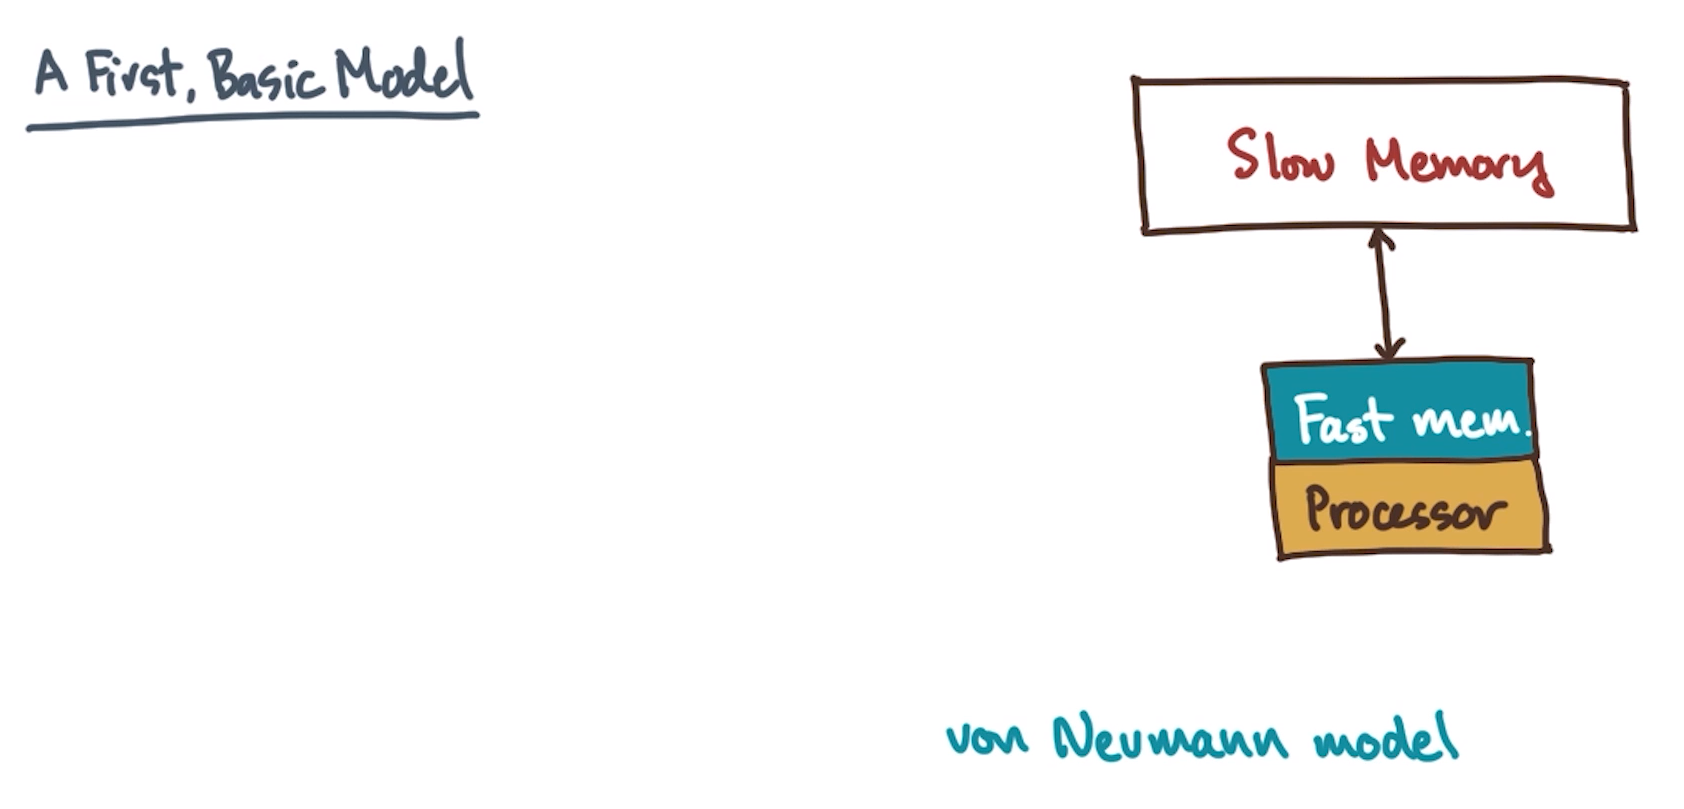 A First, Basic Model
Slow Memory
Fast mem.
Processor
von Neumann model